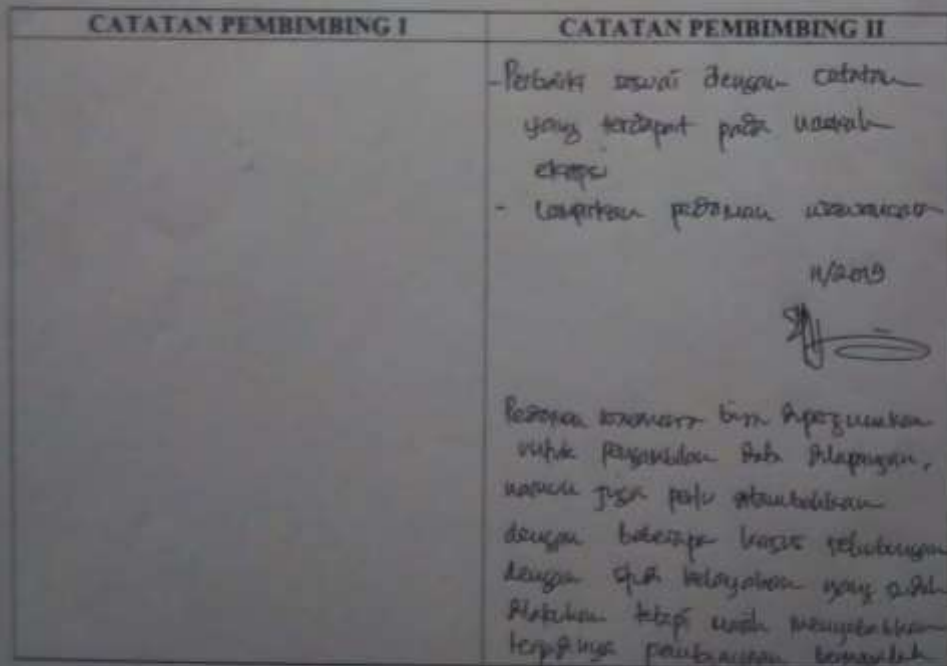 CATATAN PEMBIMBING I
CATATAN PEMBIMBING II
- Perbaiki sesuai dengan catatan
yang terdapat pada naskah
- Lampirkan pedoman wawancara
11/2019
Pedoman wawancara bisa dipergunakan
untuk pengambilan data dilapangan,
namun juga perlu ditambahkan
dengan beberapa kasus sehubungan
dengan yang
dilakukan tetapi masih menyebabkan
terjadinya